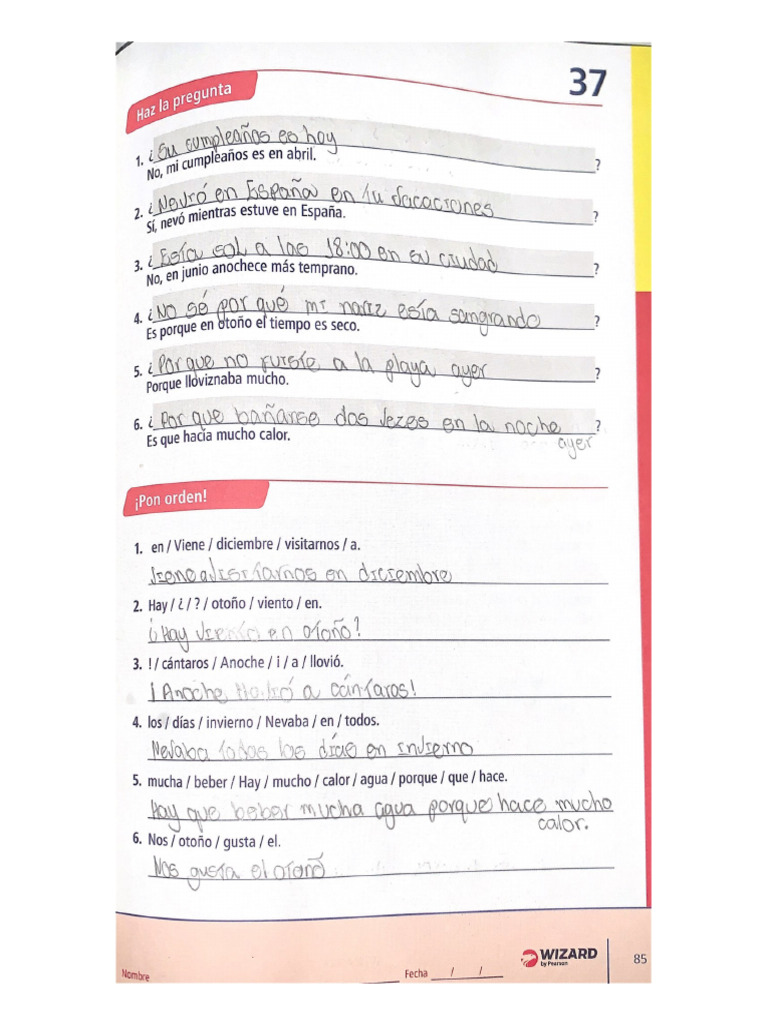 37
Haz la pregunta
1. ¿ Su cumpleaños es hoy ?
No, mi cumpleaños es en abril.
2. ¿ Nevró en España en tu vacaciones ?
Sí, nevó mientras estuve en España.
3. ¿ Esía sol a las 18:00 en su ciudad ?
No, en junio anochece más temprano.
4. ¿ No sé por qué mi nariz esía sangrando ?
Es porque en otoño el tiempo es seco.
5. ¿ Por que no fuiste a la playa ayer ?
Porque lloviznaba mucho.
6. ¿ Por que bañarse dos vezes en la noche ?
ayer
Es que hacía mucho calor.
¡Pon orden!
1. en / Viene / diciembre / visitarnos / a.
Viene a visitarnos en diciembre
2. Hay / ¿ / ? / otoño / viento / en.
¿Hay viento en otoño?
3. ! / cántaros / Anoche / ¡ / a / llovió.
¡Anoche a cántaros!
4. los / días / invierno / Nevaba / en / todos.
Nevaba todos los días en invierno
5. mucha / beber / Hay / mucho / calor / agua / porque / que / hace.
Hay que beber mucha agua porque hace mucho
calor.
6. Nos / otoño / gusta / el.
Nos gusta el otoño
Nombre
Fecha / /
WIZARD
by Pearson
85